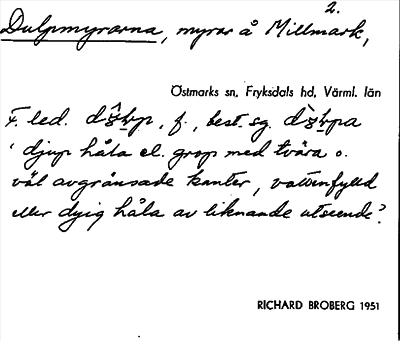 2.
Dulpmyrarna, myrar å Millmark,
Östmarks sn, Fryksdals hd, Värml. län
F. led. , f., best. sg.
' djup håla el. grop med tvära o.
väl avgränsade kanter, vattenfylld
eller dyig håla av liknande utseende'.
RICHARD BROBERG 1951